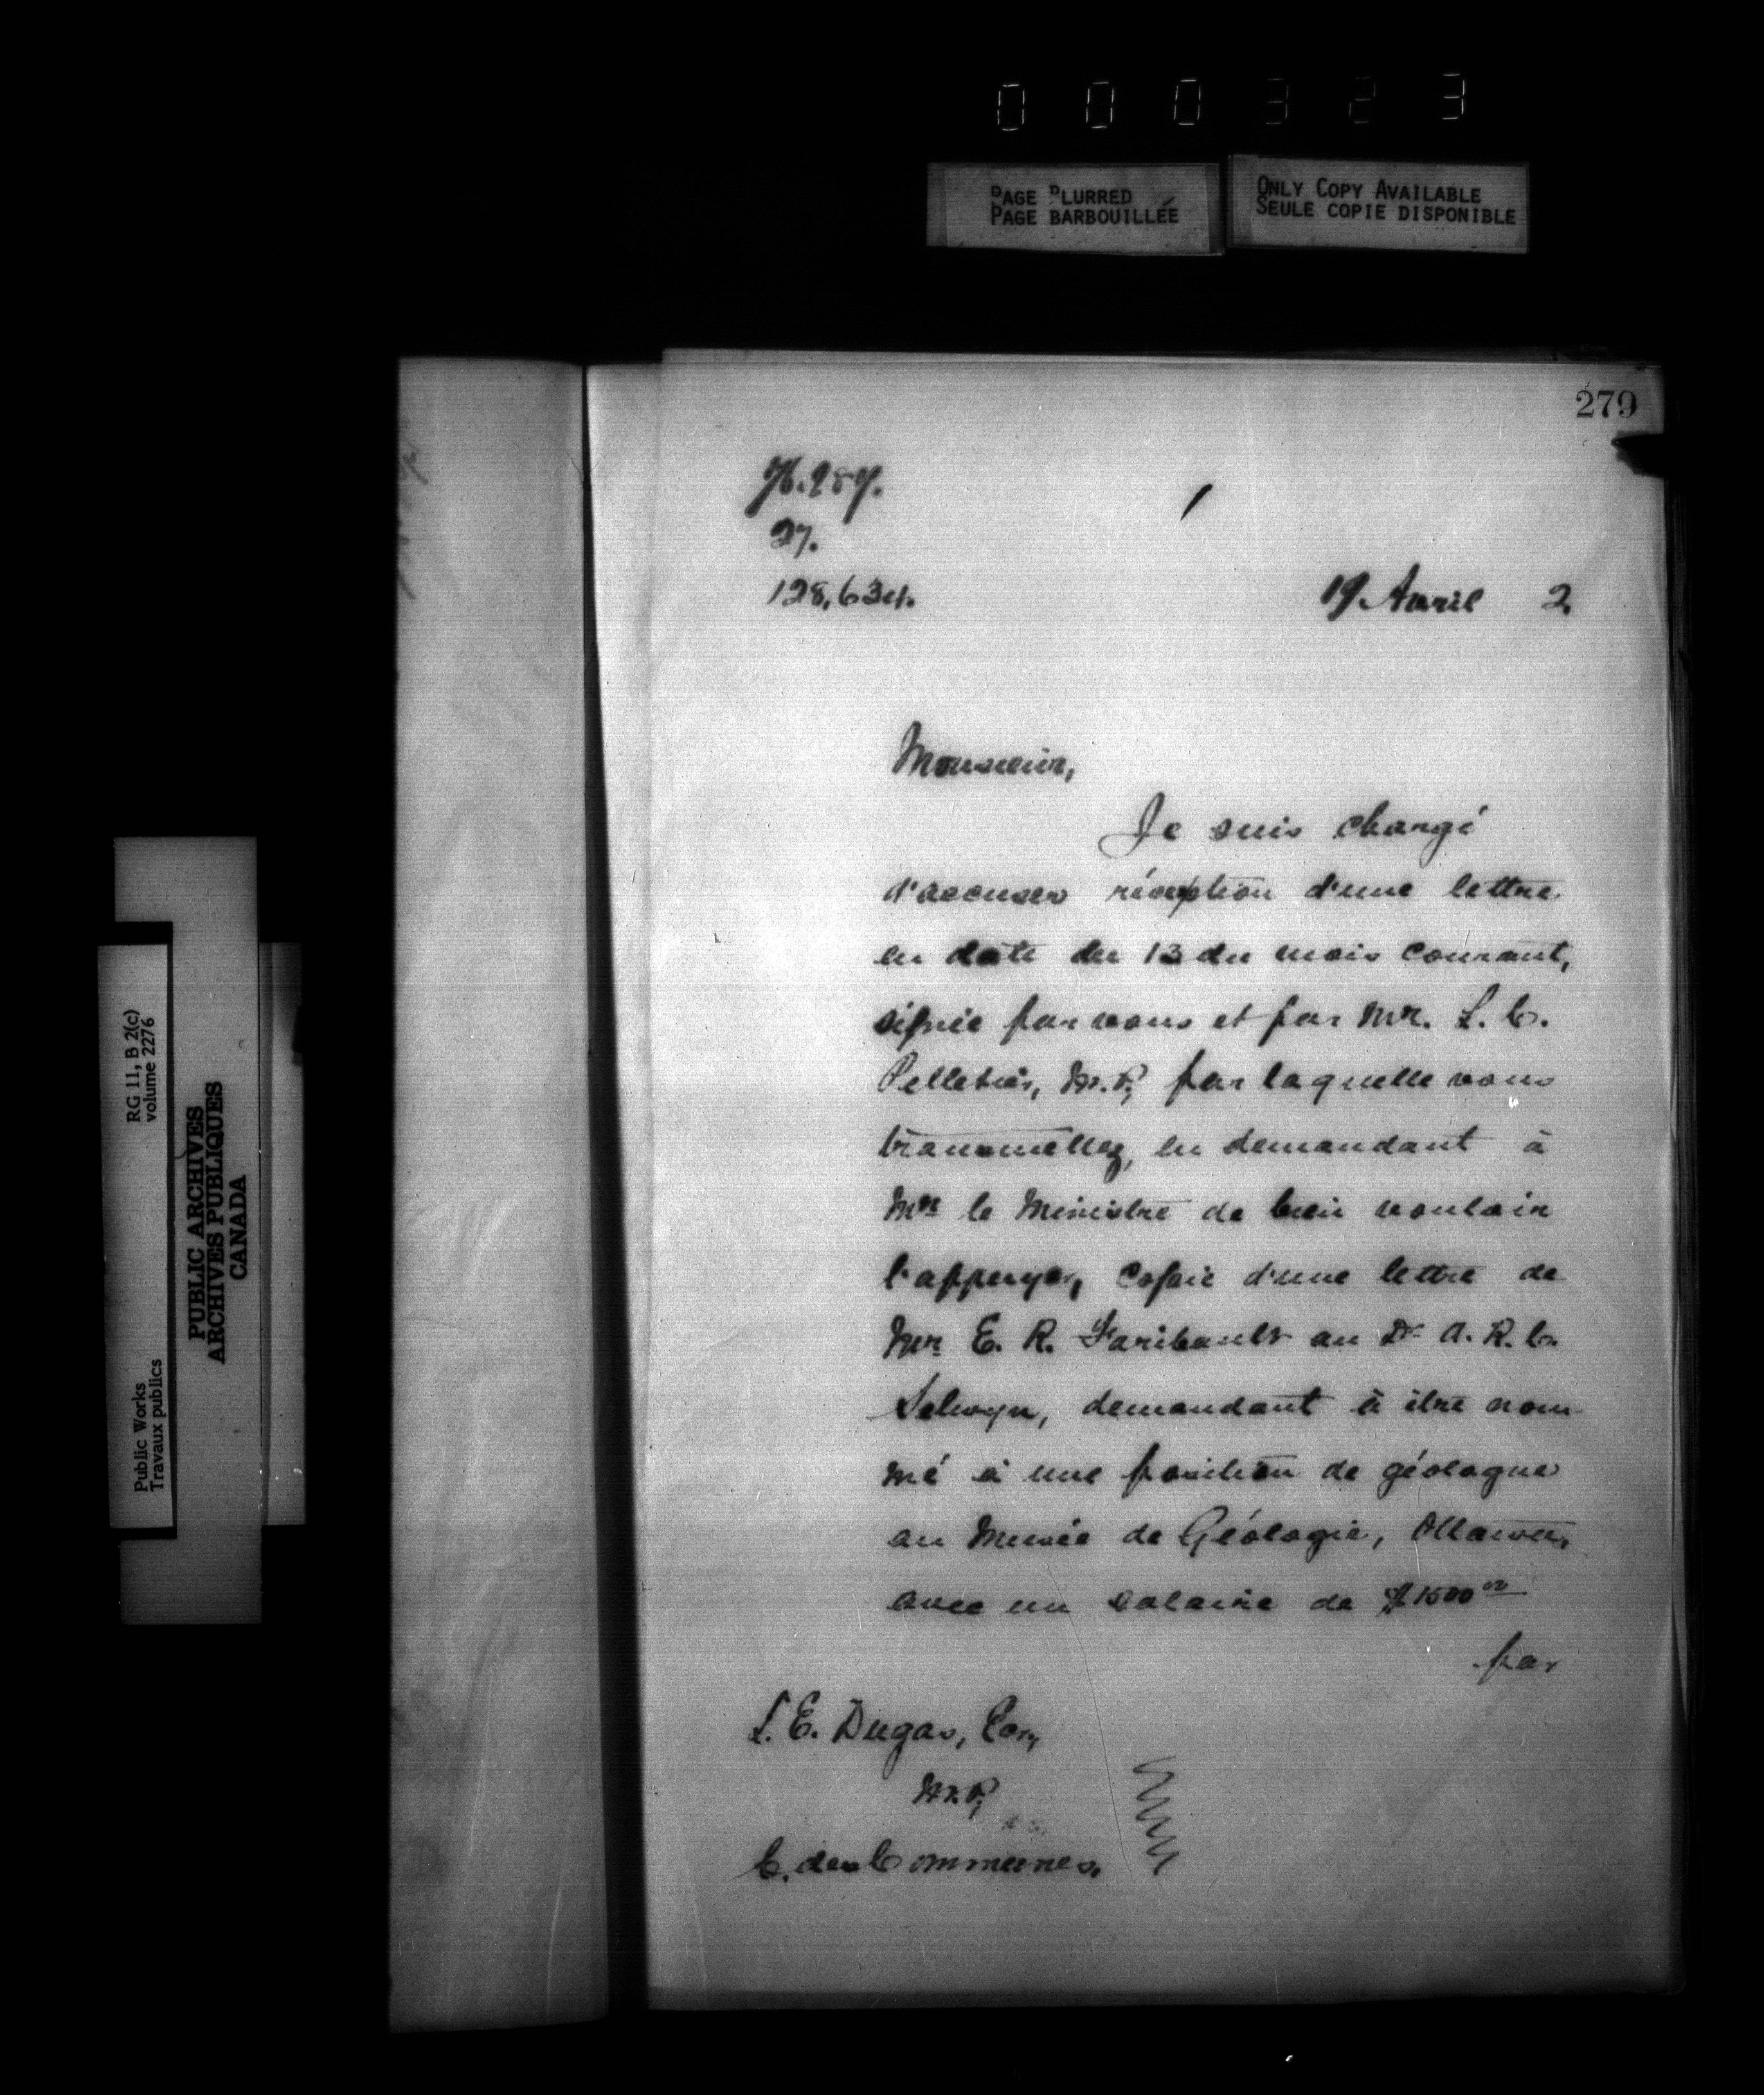 000323
PAGE BLURRED
PAGE BARBOUILLÉE
ONLY COPY AVAILABLE
SEULE COPIE DISPONIBLE
279
27.
128,634.
19 Avril 2.
Monsieur,
Je suis chargé
d'accuser réception d'une lettre
en date du 13 du mois courant,
signée par vous et par Mr. L. C.
Pelletier, M.P., par laquelle vous
transmettez, en demandant à
Mr le Ministre de bien vouloir
l'appuyer, copie d'une lettre de
Mr E. R. Faribault au Dr A. R. C.
Selwyn, demandant à être nom-
mé à une position de géologue
au Musée de Géologie, Ottawa,
avec un salaire de $1500 00
par
L. E. Dugas, Ecr,
M.P.,
C. des Communes.
RG 11, B 2(c)
volume 2276
Public Works
Travaux publics
PUBLIC ARCHIVES
ARCHIVES PUBLIQUES
CANADA